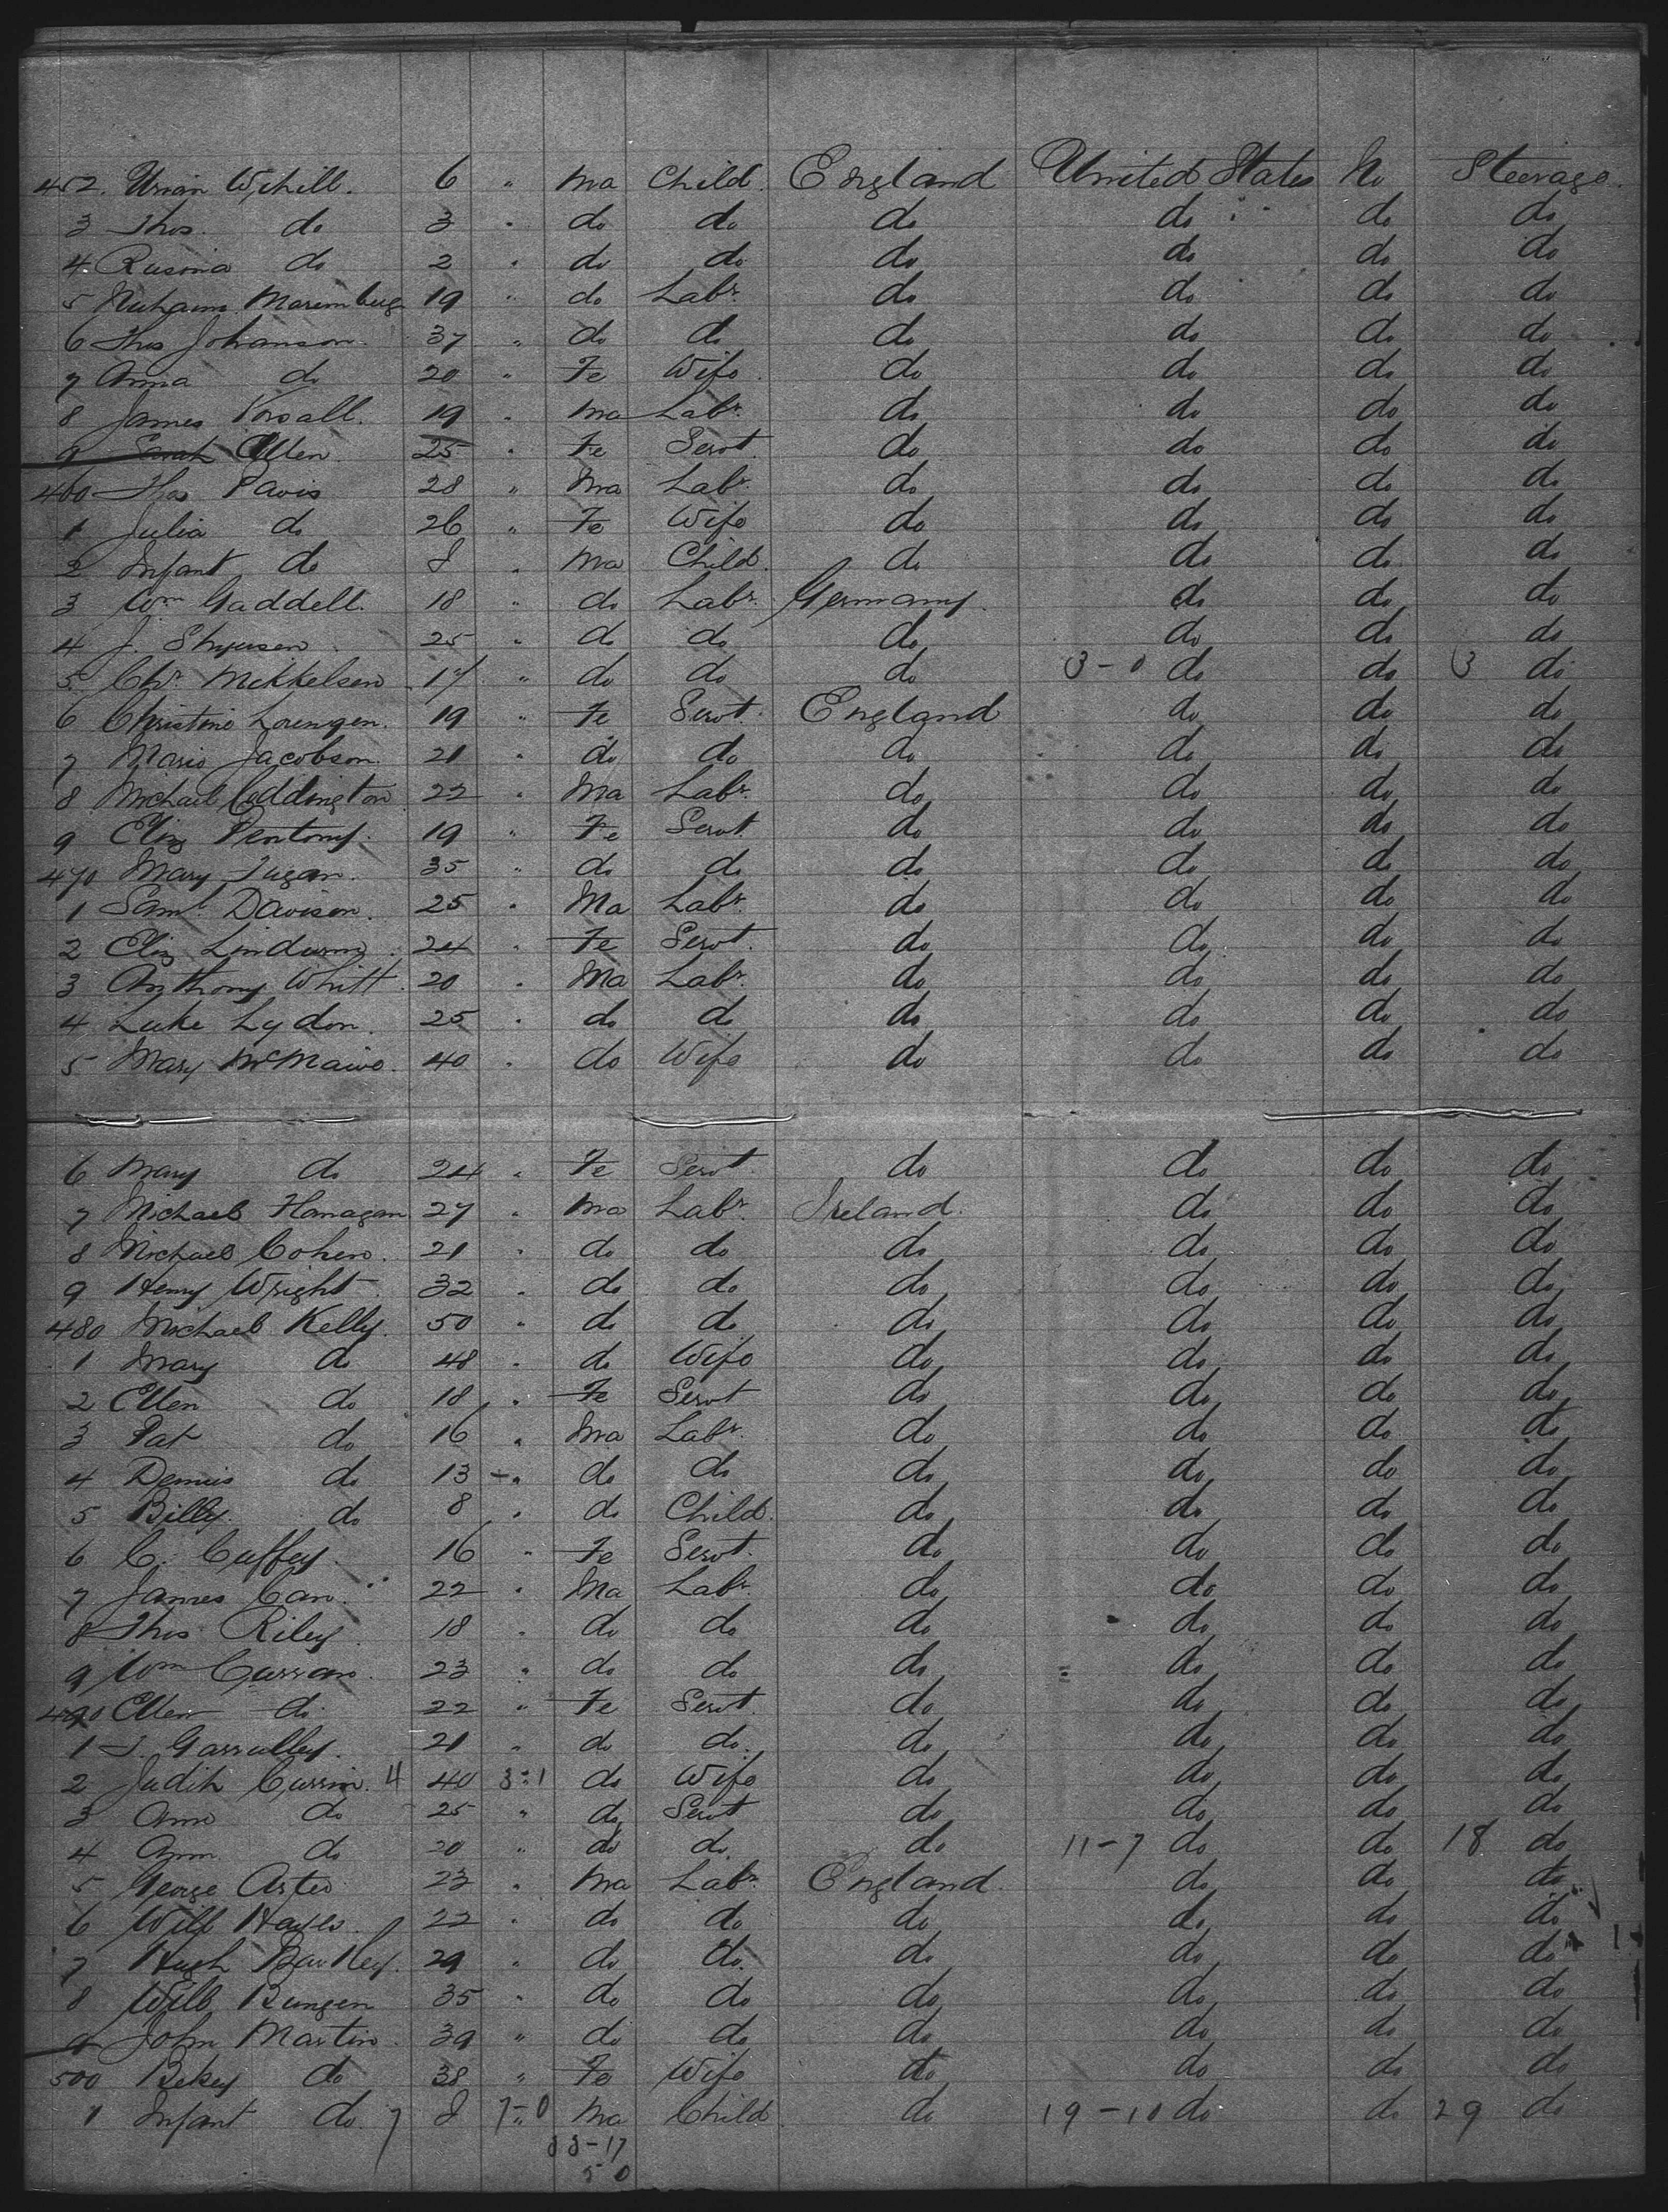 452. Urian Wihill. 6 " Ma Child. England United States No Steerage.
3 Thos. do 3 " do do do do do do
4. Rusina do 2 " do do do do do do
5 Maremburg 19 " do Labr. do do do do
6 Thos Johanson. 37 " do do do do do do
7 Anna do 20 " Fe Wife. do do do do
8 James 19 " Ma Labr. do do do do
9 Sarah Allen 25 " Fe Servt. do do do do
460 Thos Pavis 28 " Ma Labr. do do do do
1 Julia do 26 " Fe Wife do do do do
2 Infant do " Ma Child. do do do do
3 Wm Gaddell. 18 " do Labr. Germany. do do do
4 J. 25 " do do do do do do
5. Chr. Mikkelsen 17 " do do do 3-0 do do 3 do
6 Christine Lorengen. 19 " Fe Servt. England do do do
7 Marie Jacobson. 21 " do do do do do do
8 Michael Coddington 22 " Ma Labr. do do do do
9 Eliz Pentony. 19 " Fe Servt. do do do do
470 Mary 35 " do do do do do do
1 Saml. Davison. 25 " Ma Labr. do do do do
2 Eliz 24 " Fe Servt. do do do do
3 Anthony Whitt. 20 " Ma Labr. do do do do
4 Luke Lydon. 25 " do do do do do do
5 Mary 40 " do Wife do do do do
6 Mary do 24 " Fe Servt. do do do do
7 Michael Flanagan 27 " Ma Labr. Ireland. do do do
8 Michael Cohen. 21 " do do do do do do
9 Henry Wright 32 " do do do do do do
480 Michael Kelly. 50 " do do do do do do
1 Mary do 48 " do Wife do do do do
2 Ellen do 18 " Fe Servt do do do do
3 Pat do 16 " Ma Labr. do do do do
4 Dennis do 13 " do do do do do do
5 Billy. do 8 " do Child. do do do do
6 C. Cuffey. 16 " Fe Servt. do do do do
7 James Can. 22 " Ma Labr. do do do do
8 Thos Riley. 18 " do do do do do do
9 Wm Curran. 23 " do do do do do do
490 Ellen do 22 " Fe Servt. do do do do
1 J. Garrulley. 21 " do do. do do do do
2 Judith Currin. 4 40 3-1 do Wife do do do do
3 Ann do 25 " do Servt do do do do
4 Ann do 20 " do do. do 11-7 do do 18 do
5 George 23 " Ma Labr. England. do do do
6 Will 22 " do do do do do do
7 Hugh 29 " do do. do do do do
8 Will Bungen 35 " do do do do do do
9 John Martin. 39 " do do do do do do
500 Bekey do 38 " Fe Wife do do do do
1 Infant do 7 7-0 Ma Child. do 19-10 do do 29 do
33-17
50